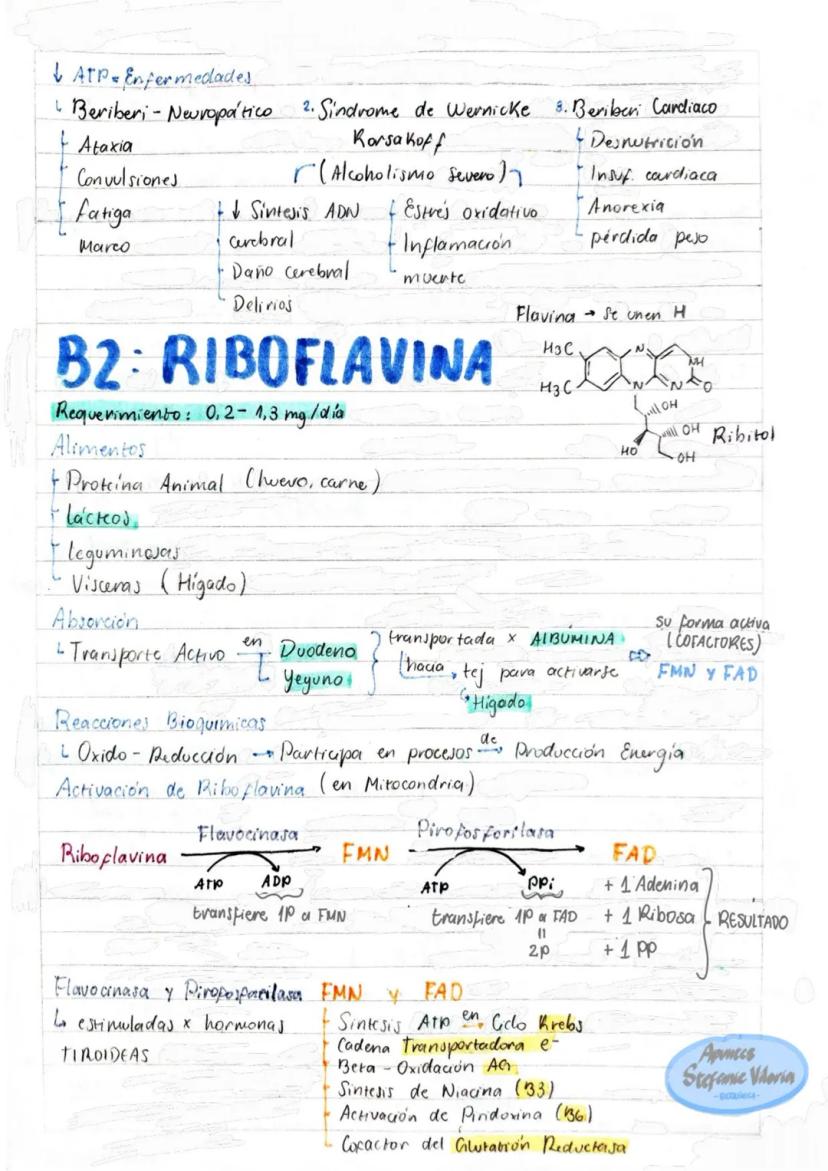 ↓ ATP = Enfermedades
1. Beriberi - Neuropático
Ataxia
Convulsiones
Fatiga
Mareo
2. Síndrome de Wernicke
Korsakoff
(Alcoholismo Severo)
↓ Síntesis ADN
cerebral
Daño cerebral
Delirios
Estrés oxidativo
Inflamación
muerte
3. Beriberi Cardiaco
Desnutrición
Insuf. cardiaca
Anorexia
pérdida peso
B2: RIBOFLAVINA
Flavina → Se unen H
H3C
H3C
N
N
N
NH
O
OH
OH
HO
OH
Ribitol
Requerimiento: 0,2 - 1,3 mg/día
Alimentos
Proteína Animal (huevo, carne)
lácteos
leguminosas
Visceras (Hígado)
Absorción
Transporte Activo en Duodeno
Yeyuno
transportada x AlBÚMINA
hacia tej para activarse
Hígado
⇨
su forma activa
(COFACTORES)
FMN y FAD
Reacciones Bioquimicas
Oxido - Reducción → Participa en procesos de → Producción Energía
Activación de Riboflavina (en Mitocondria)
Riboflavina
Flavocinasa
ATP ADP
transfiere 1P a FMN
FMN
Pirofosforilasa
ATP PPi
transfiere 1P a FAD
=
2P
FAD
+ 1 Adenina
+ 1 Ribosa
+ 1 PP
RESULTADO
Flavocinasa y Pirofosforilasa
↳ estimuladas x hormonas
TIROIDEAS
FMN y FAD
Síntesis ATP en → Ciclo Krebs
Cadena Transportadora e-
Beta - Oxidación AG
Síntesis de Niacina (B3)
Activación de Piridoxina (B6)
Cofactor del Glutatión Reductasa
Apuntes
Stefanie Viloria